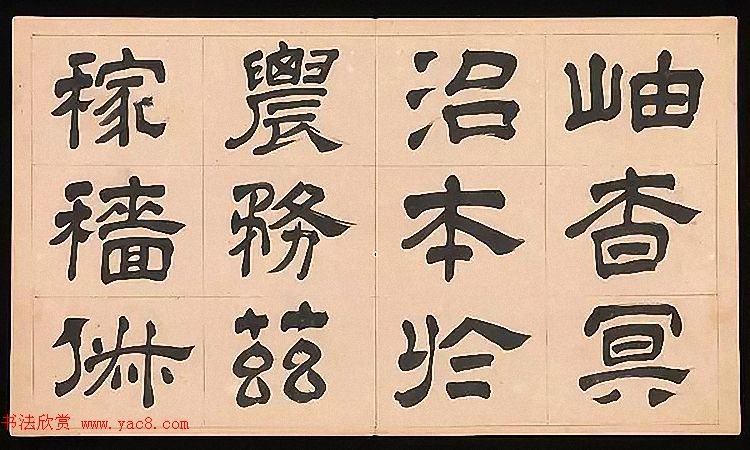 岫杳冥
治本於
農務茲
稼穡俶
书法欣赏 www.yac8.com